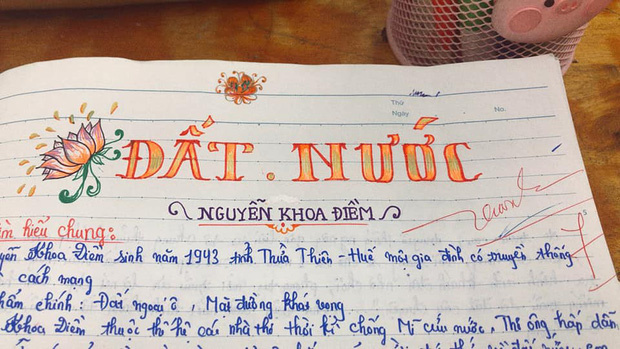 Thứ
Ngày
No.
ĐẤT.NƯỚC
NGUYỄN KHOA ĐIỀM
hiểu chung:
Khoa Điềm sinh năm 1943 tỉnh Thừa Thiên - Huế một gia đình có truyền thống
cách mạng
phẩm chính: Đất ngoại ô, Mặt đường khát vọng
Khoa Điềm thuộc thế hệ các nhà thơ thời kì chống Mĩ cứu nước, Thơ ông hấp dẫn